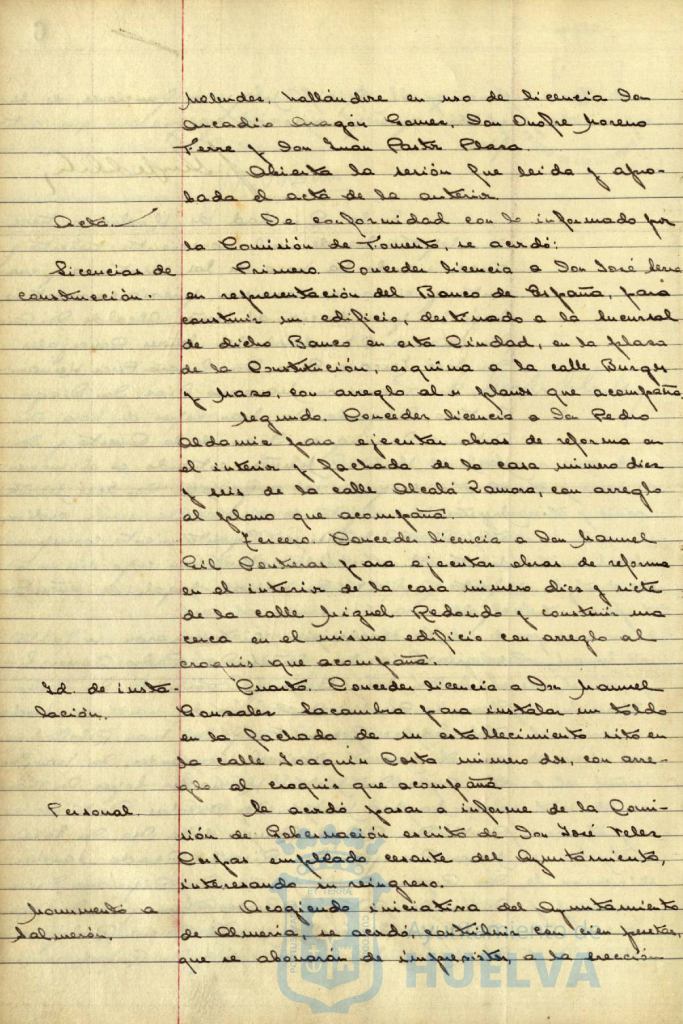 Melendez, hallándose en uso de licencia Don
Arcadio Aragón Gomez, Don Onofre Moreno
Ferre y Don Juan Pastr Plaza.
Abierta la sesión fue leida y apro-
bada el acta de la anterior.
Acta.
De conformidad con lo informado por
la Comisión de Fomento, se acordó:
Licencias de
construcción.
Primero. Conceder licencia a Don José
en representación del Banco de España, para
construir un edificio, destinado a la Sucursal
de dicho Banco en esta Ciudad, en la plaza
de la Constitución, esquina a la calle Burgos
y Mazo, con arreglo al planos que acompaña.
Segundo. Conceder licencia a Don Pedro
Aldamiz para ejecutar obras de reforma en
el interior y fachada de la casa número diez
y seis de la calle Alcalá Zamora, con arreglo
al plano que acompaña.
Tercero. Conceder licencia a Don Manuel
Gil Contreras para ejecutar obras de reforma
en el interior de la casa número diez y siete
de la calle Miguel Redondo y construir una
cerca en el mismo edificio con arreglo al
croquis que acompaña.
Id. de insta-
lación.
Cuarto. Conceder licencia a Don Manuel
Gonzalez Lacambra para instalar un toldo
en la fachada de su establecimiento sito en
la calle Joaquín Costa número dos, con arre-
glo al croquis que acompaña
Personal.
Se acordó pasar a informe de la Comi-
sión de Gobernación escrito de Don José Velez
empleado cesante del Ayuntamiento,
interesando su reingreso.
Monumento a
Salmerón.
Acogiendo iniciativa del Ayuntamiento
de Almería, se acordó, contribuir con cien pesetas,
que se abonarán de imprevistos, a la erección
Ayuntamiento de
HUELVA